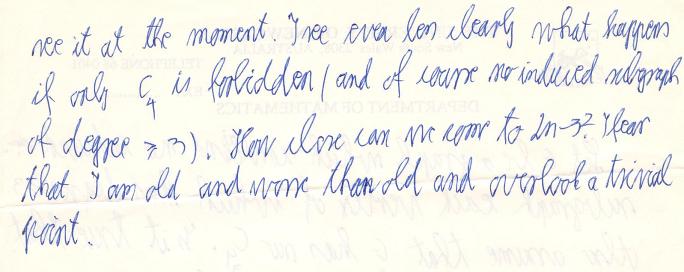 see it at the moment. I see even less clearly what happens
if only C₄ is forbidden (and of course no induced subgraph
of degree ≥ 3). How close can we come to 2n-3? I fear
that I am old and worse than old and overlook a trivial
point.